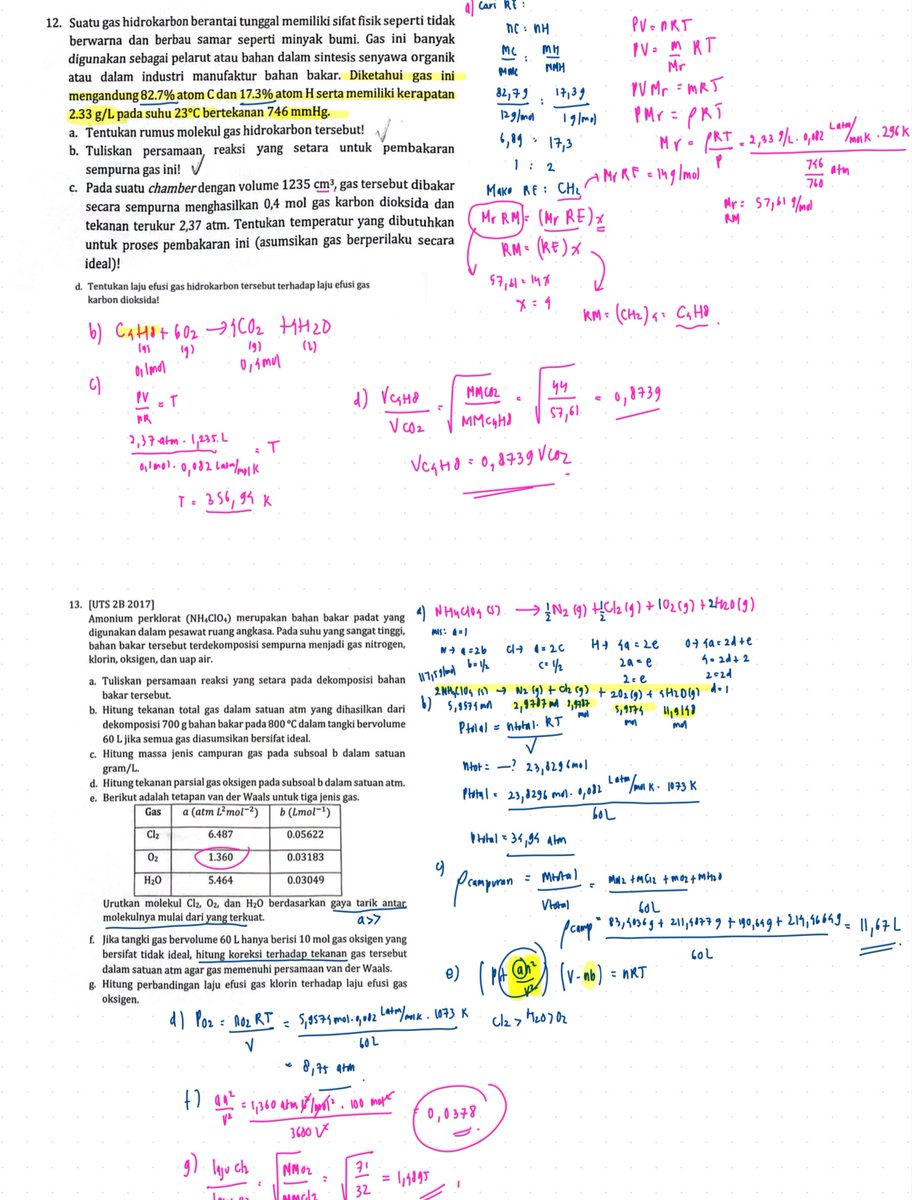 12. Suatu gas hidrokarbon berantai tunggal memiliki sifat fisik seperti tidak
berwarna dan berbau samar seperti minyak bumi. Gas ini banyak
digunakan sebagai pelarut atau bahan dalam sintesis senyawa organik
atau dalam industri manufaktur bahan bakar. Diketahui gas ini
mengandung 82.7% atom C dan 17.3% atom H serta memiliki kerapatan
2.33 g/L pada suhu 23°C bertekanan 746 mmHg.
a. Tentukan rumus molekul gas hidrokarbon tersebut!
b. Tuliskan persamaan reaksi yang setara untuk pembakaran
sempurna gas ini!
c. Pada suatu chamber dengan volume 1235 cm³, gas tersebut dibakar
secara sempurna menghasilkan 0,4 mol gas karbon dioksida dan
tekanan terukur 2,37 atm. Tentukan temperatur yang dibutuhkan
untuk proses pembakaran ini (asumsikan gas berperilaku secara
ideal)!
d. Tentukan laju efusi gas hidrokarbon tersebut terhadap laju efusi gas
karbon dioksida!
a) Cari RE :
nC : nH
mC : mH
MMC MMH
82,7g : 17,3g
12g/mol 1g/mol
6,89 : 17,3
1 : 2
Maka RE : CH2 → Mr RE = 14 g/mol
Mr RM = (Mr RE)x
RM = (RE)x
57,61 = 14x
x = 4
RM = (CH2)4 = C4H8.
PV = nRT
PV = m/Mr RT
PV Mr = mRT
PMr = ρRT
Mr = ρRT/P = 2,33 g/L . 0,082 Latm/molK . 296K
746/760 atm
Mr RM = 57,61 g/mol
b) C4H8 + 6O2 → 4CO2 + 4H2O
(g) (g) (g) (l)
0,1mol 0,4mol
c)
PV/nR = T
2,37 atm . 1,235 L = T
0,1mol . 0,082 Latm/molK
T = 356,94 K
d) VC4H8/VCO2 = √MMCO2/MMC4H8 = √44/57,61 = 0,8739
VC4H8 = 0,8739 VCO2
13. [UTS 2B 2017]
Amonium perklorat (NH₄ClO₄) merupakan bahan bakar padat yang
digunakan dalam pesawat ruang angkasa. Pada suhu yang sangat tinggi,
bahan bakar tersebut terdekomposisi sempurna menjadi gas nitrogen,
klorin, oksigen, dan uap air.
a. Tuliskan persamaan reaksi yang setara pada dekomposisi bahan
bakar tersebut.
b. Hitung tekanan total gas dalam satuan atm yang dihasilkan dari
dekomposisi 700 g bahan bakar pada 800 °C dalam tangki bervolume
60 L jika semua gas diasumsikan bersifat ideal.
c. Hitung massa jenis campuran gas pada subsoal b dalam satuan
gram/L.
d. Hitung tekanan parsial gas oksigen pada subsoal b dalam satuan atm.
e. Berikut adalah tetapan van der Waals untuk tiga jenis gas.
Gas a (atm L²mol⁻²) b (Lmol⁻¹)
Cl₂ 6.487 0.05622
O₂ 1.360 0.03183
H₂O 5.464 0.03049
Urutkan molekul Cl₂, O₂, dan H₂O berdasarkan gaya tarik antar
molekulnya mulai dari yang terkuat.
a>>
f. Jika tangki gas bervolume 60 L hanya berisi 10 mol gas oksigen yang
bersifat tidak ideal, hitung koreksi terhadap tekanan gas tersebut
dalam satuan atm agar gas memenuhi persamaan van der Waals.
g. Hitung perbandingan laju efusi gas klorin terhadap laju efusi gas
oksigen.
a) NH4ClO4 (s) → ½N2 (g) + ½Cl2 (g) + 1O2 (g) + 2H2O (g)
mis: a=1
N → a=2b Cl → a=2c H → 4a=2e O → 4a=2d+e
b=1/2 c=1/2 2a=e 4=2d+2
2=e 2=2d
d=1
117,5 g/mol
b) 2NH4ClO4 (s) → N2 (g) + Cl2 (g) + 2O2 (g) + 4H2O (g)
5,9574 mol 2,9787 mol 2,9787 mol 5,9574 mol 11,9148 mol
Ptotal = ntotal . RT
V
ntot = —? 23,8296 mol
Ptotal = 23,8296 mol . 0,082 Latm/mol K . 1073 K
60L
Ptotal = 34,94 atm
c) ρcampuran = Mtotal/Vtotal = mN2 + mCl2 + mO2 + mH2O
60L
ρcamp = 83,4036g + 211,4877g + 190,64g + 214,4664g = 11,67 L
60L
e) (P + an²/V²) (V - nb) = nRT
Cl2 > H2O > O2
d) PO2 = nO2 RT/V = 5,9574 mol . 0,082 Latm/molK . 1073 K
60L
= 8,75 atm
f) an²/V² = 1,360 atm L²/mol² . 100 mol² = 0,0378
3600 L²
g) laju Cl2 = √MMO2/MMCl2 = √71/32 = 1,4895